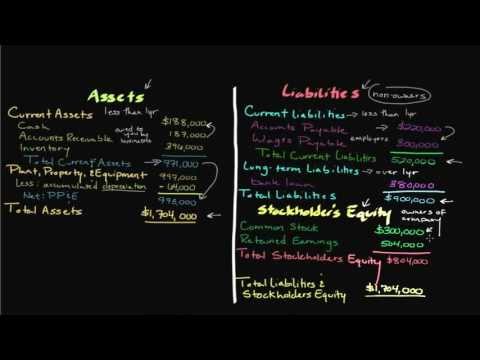 Assets
Current Assets less than 1yr
Cash $188,000
Accounts Receivable owed to you by customers 187,000
Inventory 396,000
Total Current Assets 771,000
Plant, Property, & Equipment 997,000
Less: accumulated depreciation - 64,000
Net: PP&E 933,000
Total Assets $1,704,000
Liabilities non-owners
Current Liabilities → less than 1yr
Accounts Payable $220,000
Wages Payable employees 300,000
Total Current Liabilities 520,000
Long-term Liabilities → over 1yr
bank loan 380,000
Total Liabilities $900,000
Stockholder's Equity owners of company
Common Stock $300,000
Retained Earnings 504,000
Total Stockholders Equity $804,000
Total Liabilities &
Stockholders Equity $1,704,000